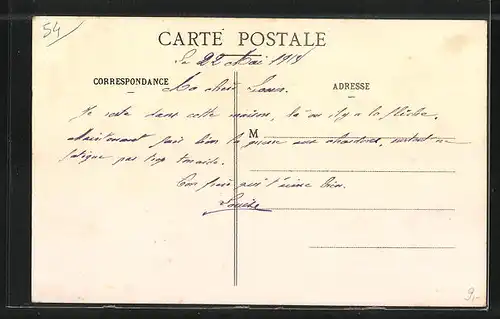 54
CARTE POSTALE
Le 22 Mai 191
CORRESPONDANCE
ADRESSE
Ma chère Soeur.
Je reste dans cette maison, là ou il y a la flèche.
M
Maintenant fais bien la
fatigue pas trop
Ton frère qui t'aime bien.
9,-